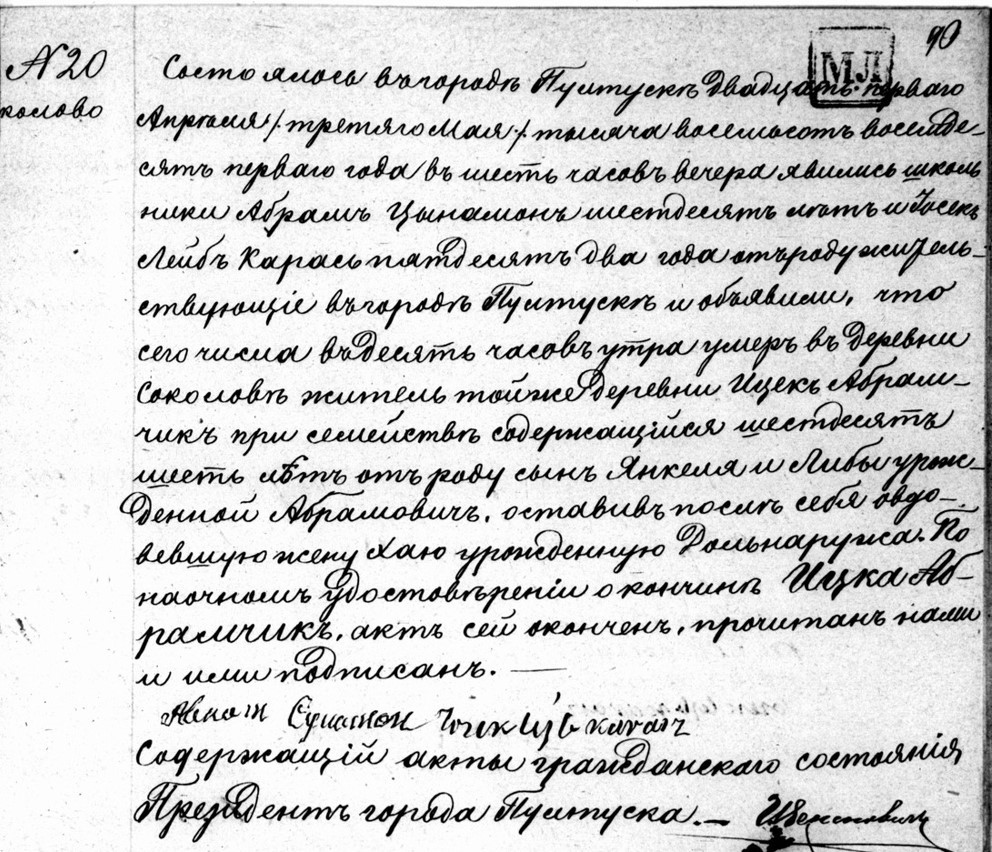 90
М.Л
№ 20
Состоялось въ городѣ Пултускѣ двадцать перваго
колово
Апрѣля /: третяго Мая :/ тысяча восемьсотъ восемде-
сятъ перваго года въ шесть часовъ вечера явились школь
ники Абрамъ Цынамонъ шестдесятъ лѣтъ и Іосекъ
Лейбъ Карась пятдесятъ два года отъ роду житель-
ствующіе въ городѣ Пултускѣ и объявили, что
сего числа въ десять часовъ утра умеръ въ деревни
Соколовѣ житель той же деревни Ицекъ Абрам-
чикъ при семействѣ содержащійся шестдесятъ
шесть лѣтъ отъ роду сынъ Янкеля и Либы урож-
денной Абрамовичъ, оставивъ послѣ себя овдо-
вевшую жену Хаю урожденную Дольнаружа. По
наочномъ удостовѣреніи о кончинѣ Ицка Аб-
рамчикъ, актъ сей оконченъ, прочитанъ нами
и ими подписанъ. —
Содержащій акты гражданскаго состоянія
Президентъ города Пултуска. —